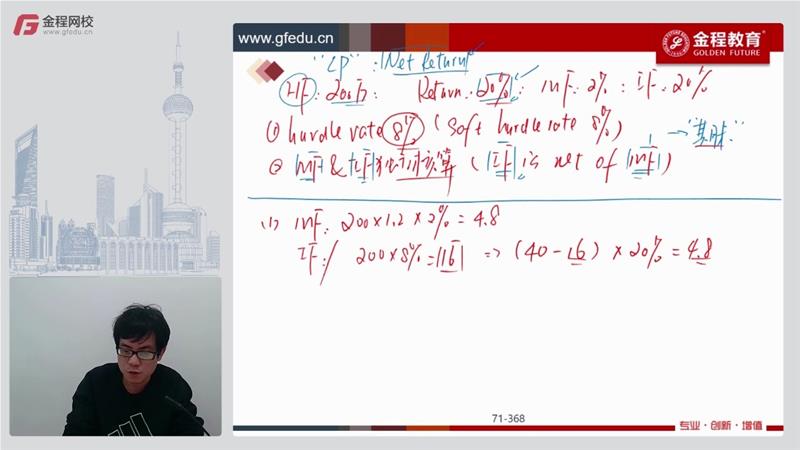 金程网校
www.gfedu.cn
www.gfedu.cn
金程教育
GOLDEN FUTURE
"LP": Net Return
HF: 200万: Return: 20%: MF: 2%: IF: 20%
① hurdle rate 8% (Soft hurdle rate 8%)
② MF & IF 独立计算 (IF is net of MF) → "其时"
(1) MF: 200×1.2×2% = 4.8
IF: 200×8% = 16 => (40-16)×20% = 4.8
71-368
专业·创新·增值